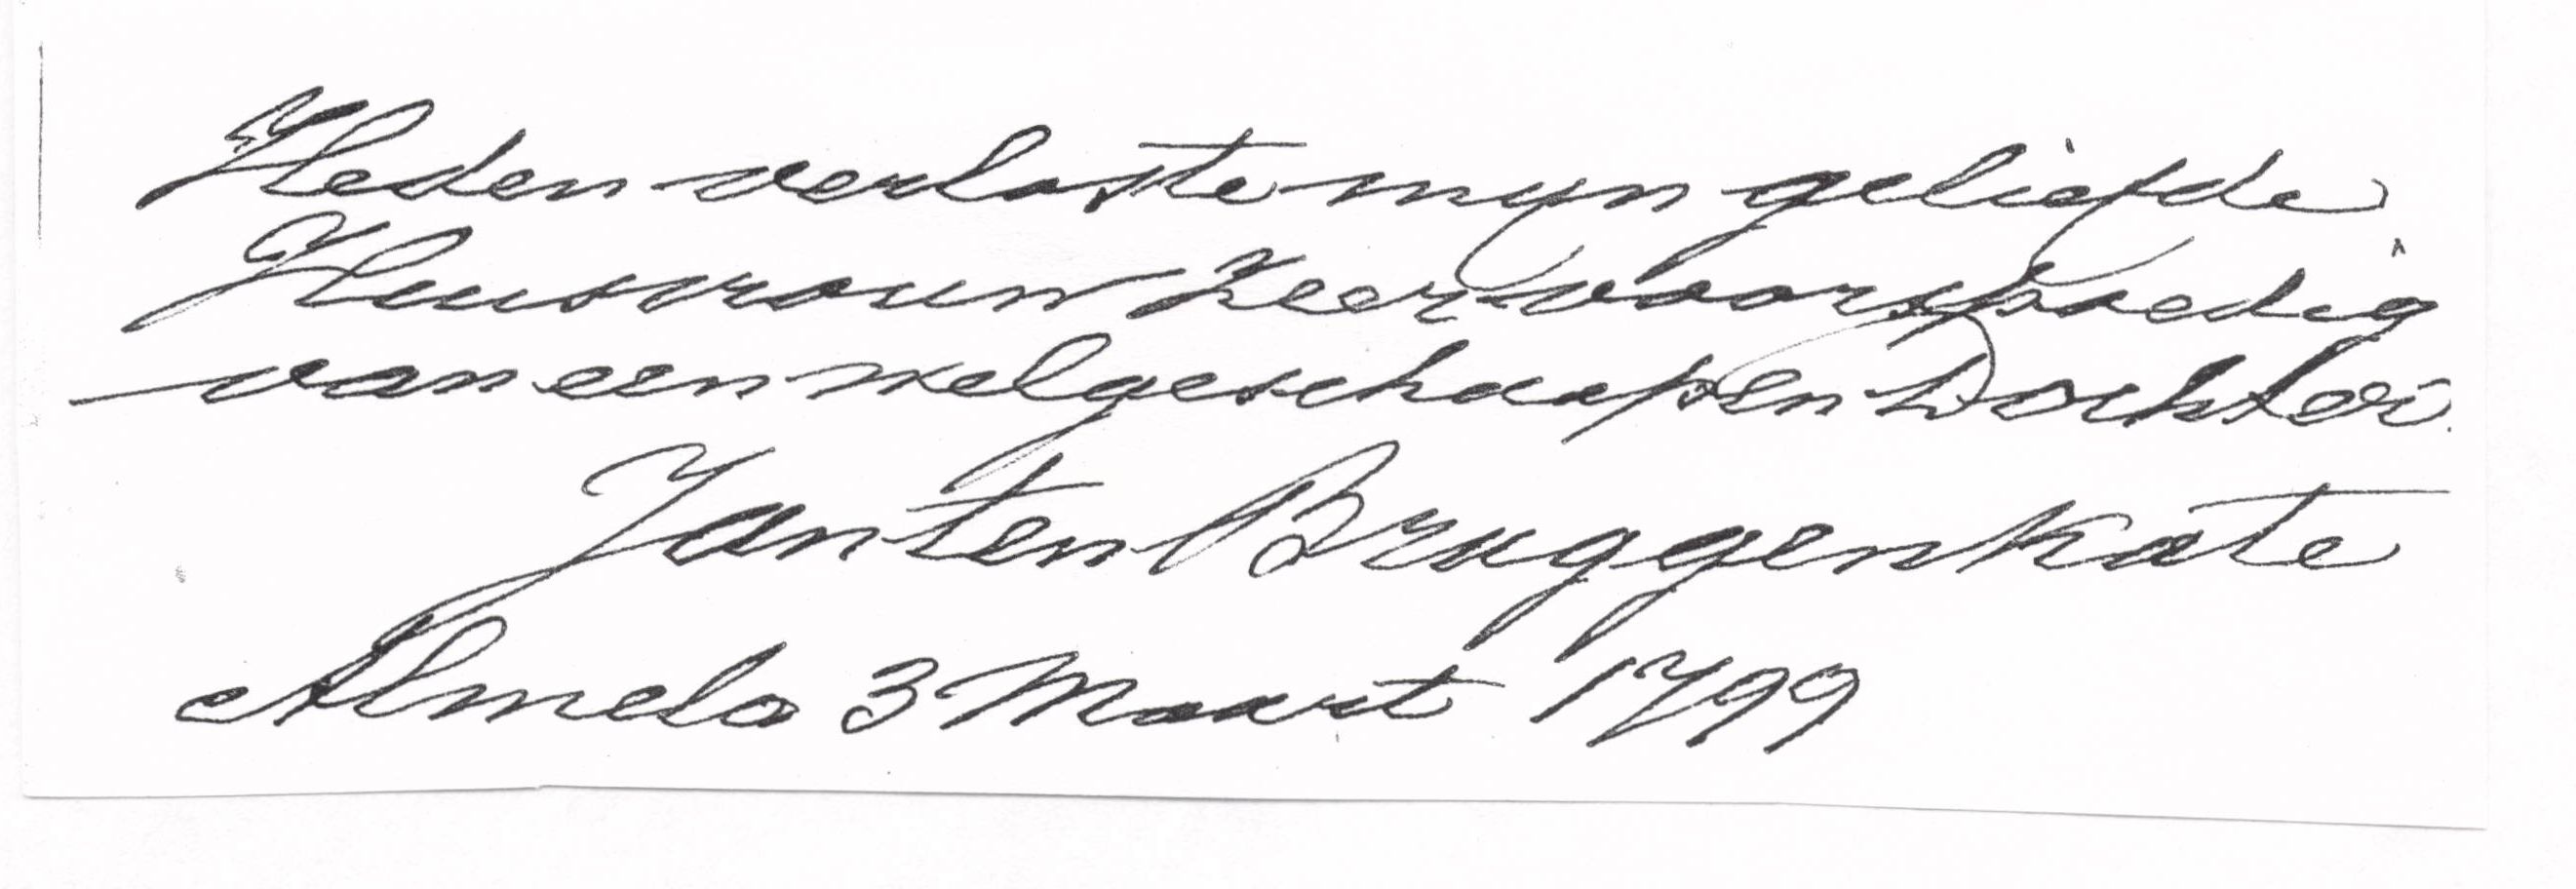 Heden verloste myn geliefde
Huusvrouw zeer voorspoedig
van een welgeschaapen Dochter.
Jan ten Bruggenkate
Almelo 3 Maart 1799